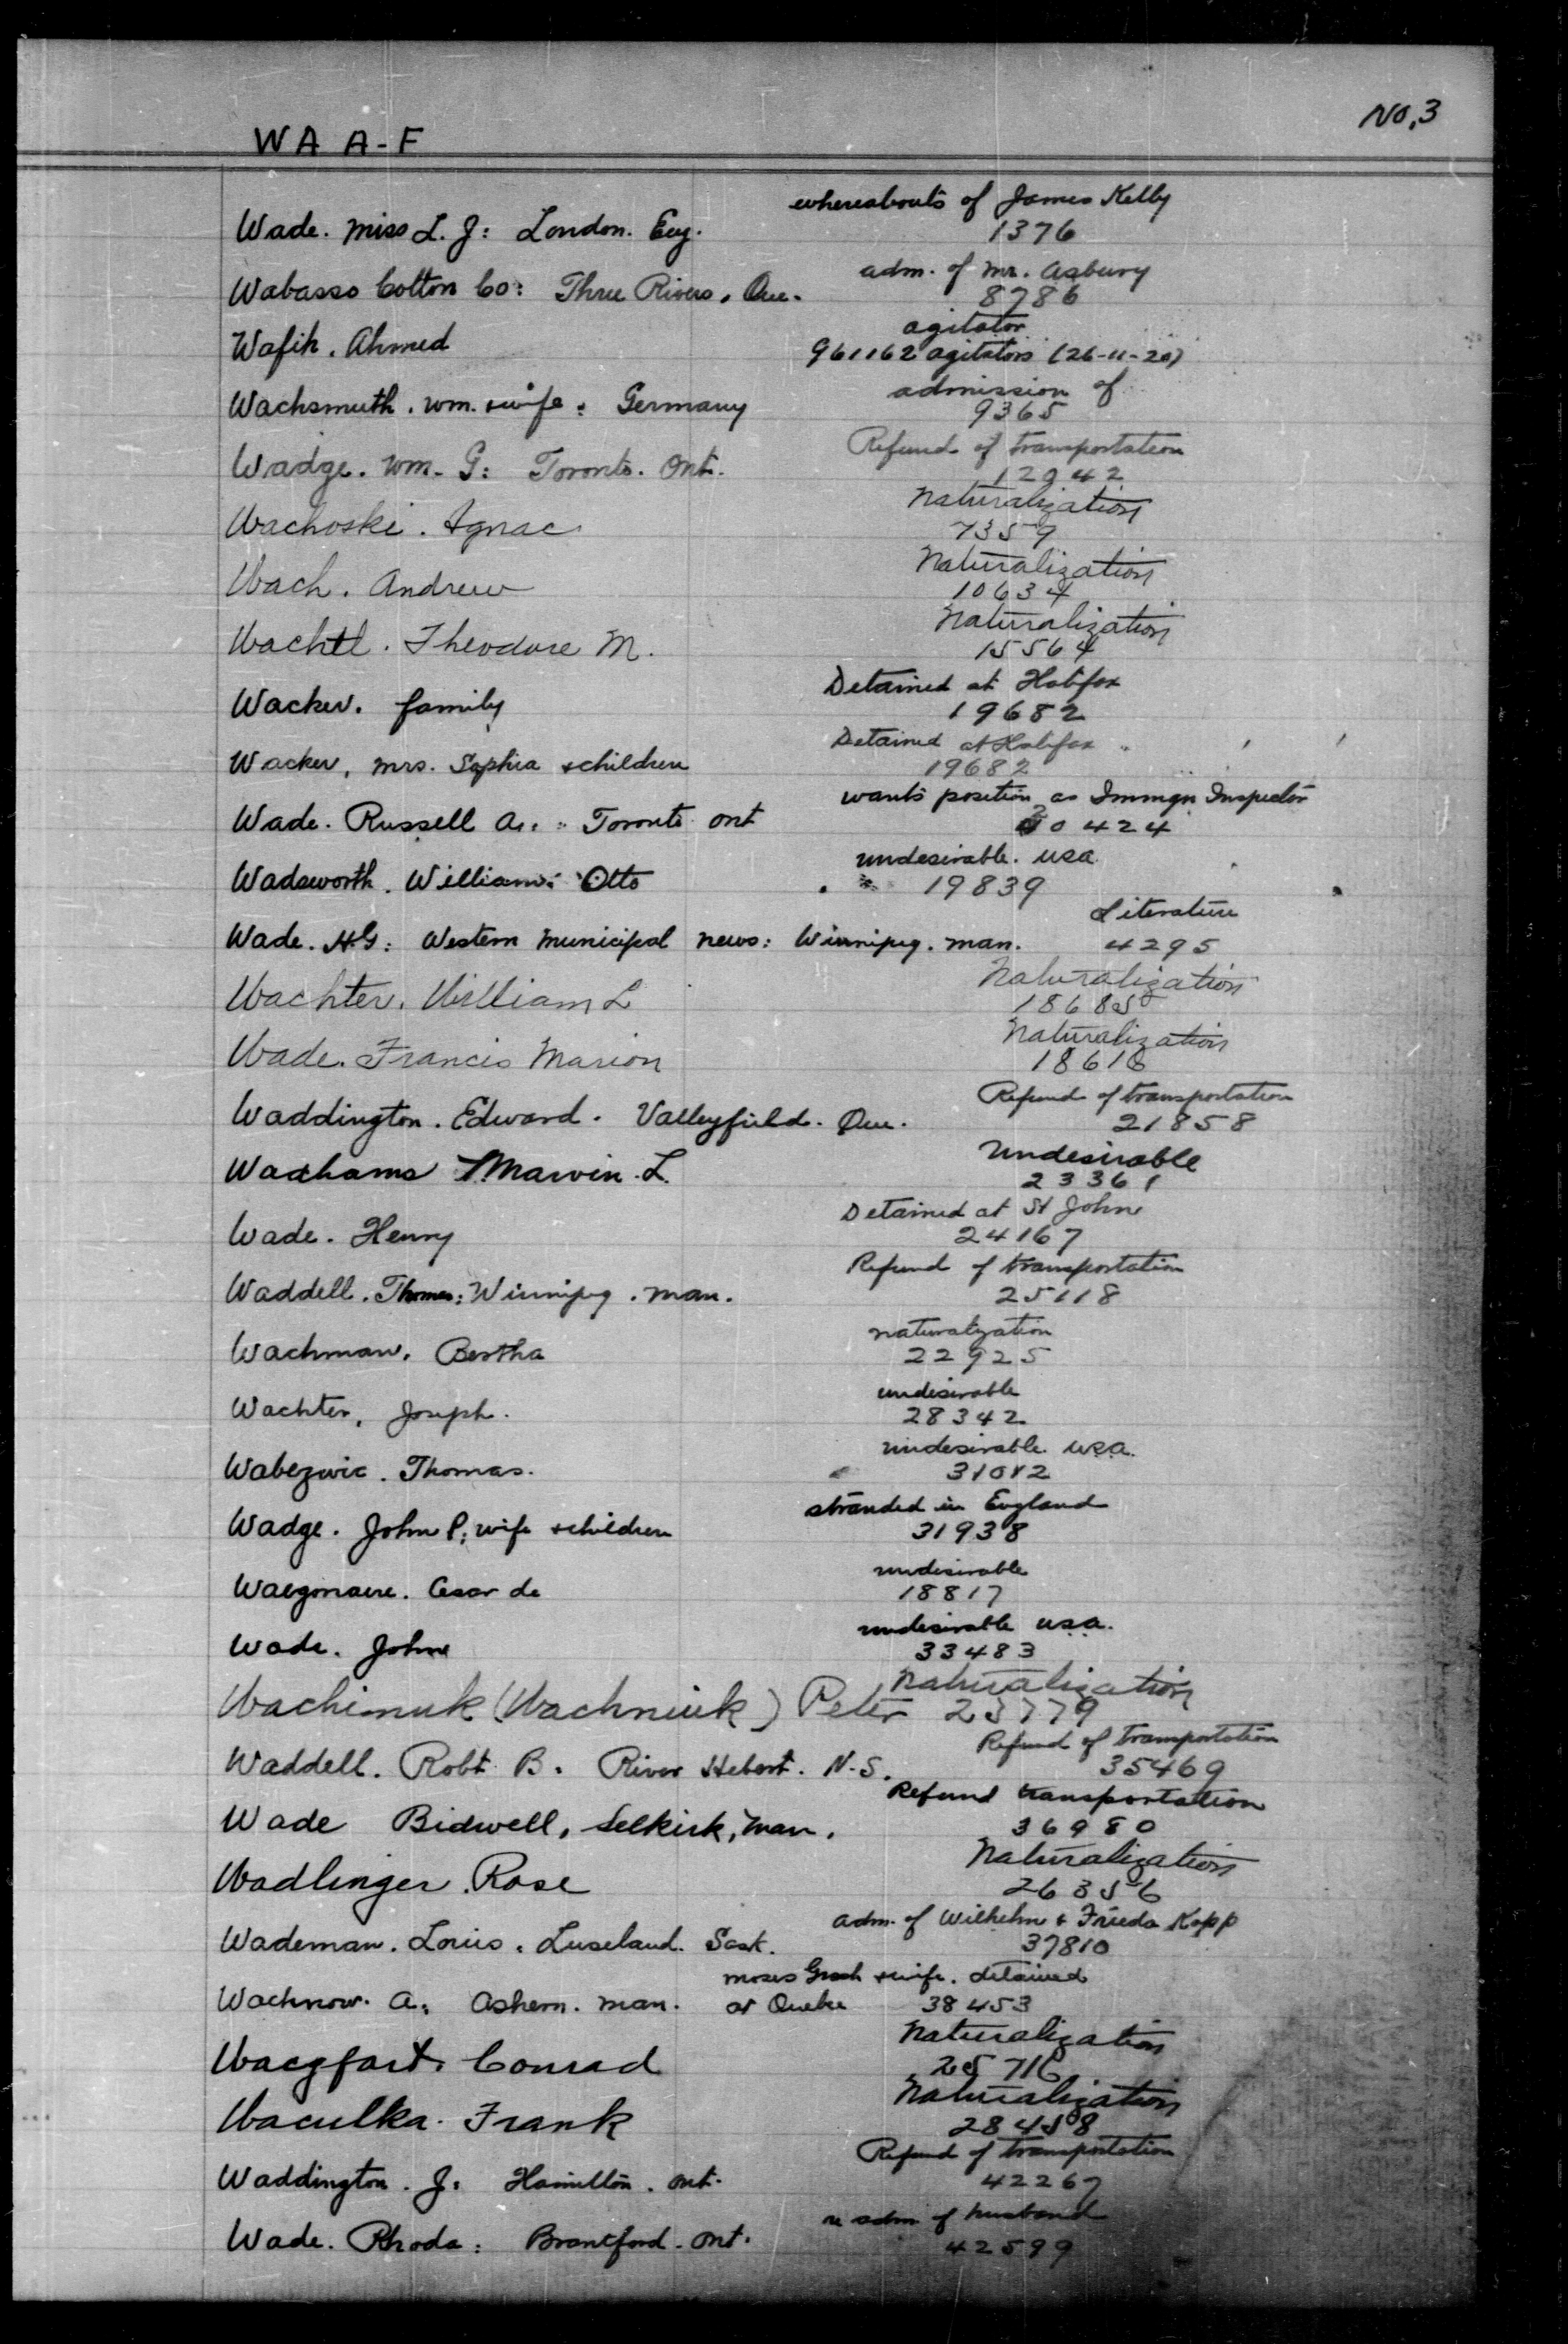 No, 3
WA A-F
whereabouts of James Kelly
Wade. Miss L. J: London. Eng. 1376
adm. of Mr. Asbury
Wabasso Cotton Co: Three Rivers, Que. 8786
agitator
Wafik, Ahmed 961162 agitators (26-11-20)
admission of
Wachsmuth, Wm. & wife: Germany 9365
Refund of transportation
Wadge. Wm. G: Toronto. Ont. 12942
Naturalization
Wachoski. Ignac 7359
Naturalization
Wach. Andrew 10634
Naturalization
Wachtl. Theodore M. 15564
Detained at Halifax
Wacker. family 19682
Detained at Halifax
Wacker, Mrs. Sophia & children 19682
wants position as Immgn Inspector
Wade. Russell A.: Toronto Ont 20424
undesirable. USA
Wadsworth. William Otto 19839
Literature
Wade. H.G: Western Municipal News: Winnipeg. Man. 4295
Naturalization
Wachter, William L 18685
Naturalization
Wade. Francis Marion 18616
Refund of transportation
Waddington. Edward. Valleyfield. Que. 21858
Undesirable
Wadhams Marvin. L. 23361
Detained at St John
Wade. Henry 24167
Refund of transportation
Waddell. Thomas: Winnipeg. Man. 25118
naturalization
Wachman. Bertha 22925
undesirable
Wachter, Joseph. 28342
undesirable. USA.
Wabezwic. Thomas. 31012
stranded in England
Wadge. John P: wife & children 31938
undesirable
Waegonaere. Cesar de 18817
undesirable USA.
Wade. John 33483
Naturalization
Wachimuk (Wachniuk) Peter 23779
Refund of transportation
Waddell. Robt. B. River Hebert. N.S. 35469
Refund transportation
Wade Bidwell, Selkirk, Man. 36980
Naturalization
Wadlinger. Rose 26356
adm. of Wilhelm & Frieda Kopp
Wademan. Louis. Luseland. Sask. 37810
Moses & wife. detained
Wachnow. A: Ashern. Man. at Quebec 38453
Naturalization
Wacgfart. Conrad 25716
Naturalization
Waculka. Frank 28458
Refund of transportation
Waddington. J: Hamilton. Ont. 42267
re adm of husband
Wade. Rhoda: Brantford. Ont. 42599